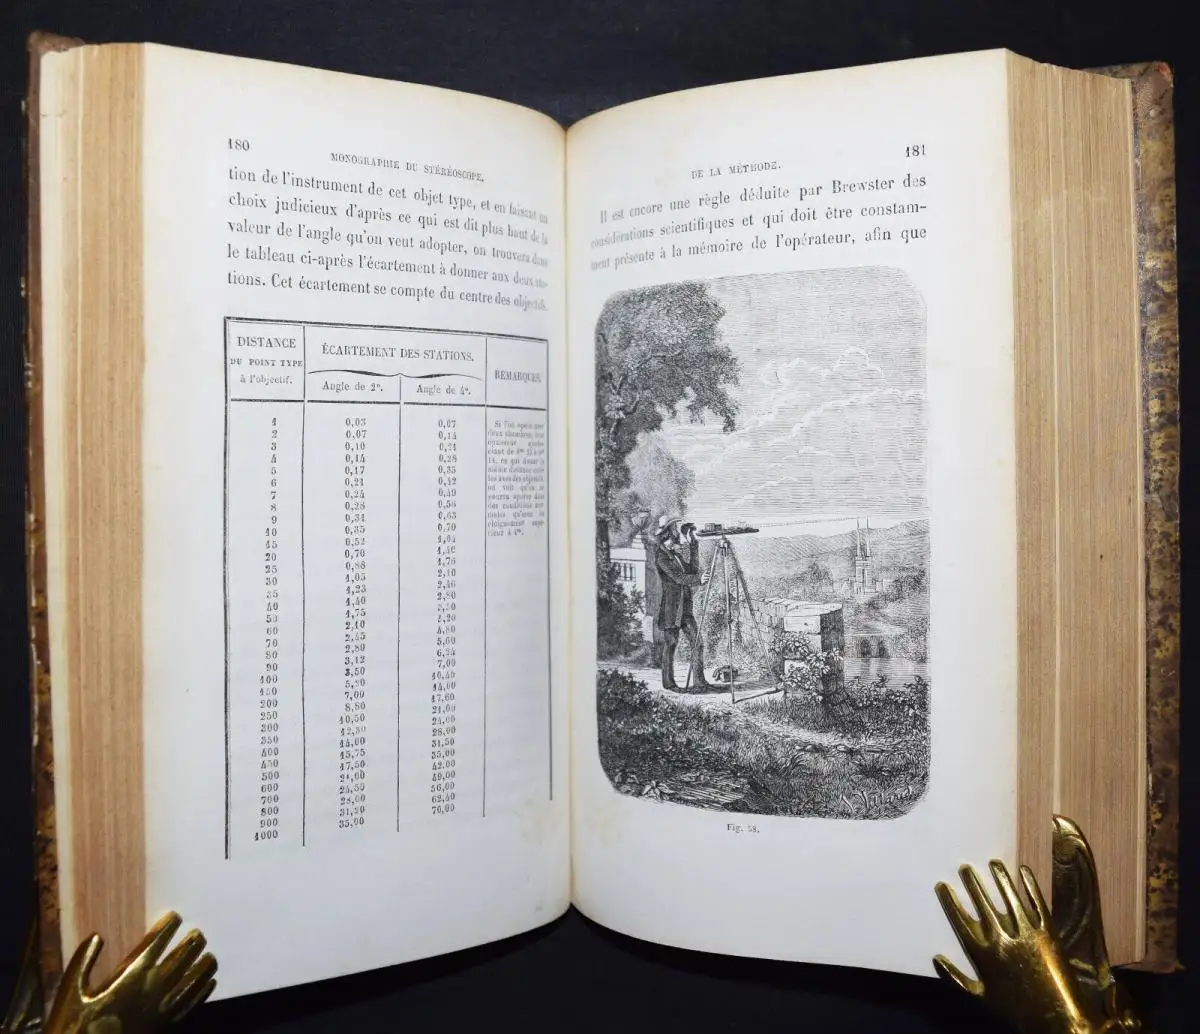 180
MONOGRAPHIE DU STÉRÉOSCOPE.
tion de l'instrument de cet objet type, et en faisant un
choix judicieux d'après ce qui est dit plus haut de la
valeur de l'angle qu'on veut adopter, on trouvera dans
le tableau ci-après l'écartement à donner aux deux sta-
tions. Cet écartement se compte du centre des objectifs.
DISTANCE
DU POINT TYPE
à l'objectif.
ÉCARTEMENT DES STATIONS.
Angle de 2°.
Angle de 4°.
REMARQUES.
1 0,03 0,07
2 0,07 0,14
3 0,10 0,21
4 0,14 0,28
5 0,17 0,35
6 0,21 0,42
7 0,24 0,49
8 0,28 0,56
9 0,31 0,63
10 0,35 0,70
15 0,52 1,04
20 0,70 1,40
25 0,88 1,75
30 1,05 2,10
35 1,23 2,46
40 1,40 2,80
50 1,75 3,50
60 2,10 4,20
70 2,45 4,80
80 2,80 5,60
90 3,12 6,24
100 3,50 7,00
150 5,20 10,40
200 7,00 14,00
250 8,80 17,60
300 10,50 21,00
350 12,30 24,60
400 14,00 28,00
450 15,75 31,50
500 17,50 35,00
600 21,00 42,00
700 24,50 49,00
800 28,00 56,00
900 31,20 62,40
1000 35,00 70,00
Si l'on opère avec
deux chambres, leur
même distance entre
les axes des objectifs,
on voit qu'on ne
pourra opérer dans
des conditions nor-
males qu'avec un
éloignement supé-
rieur à 4m.
DE LA MÉTHODE.
181
Il est encore une règle déduite par Brewster des
considérations scientifiques et qui doit être constam-
ment présente à la mémoire de l'opérateur, afin que
Fig. 58.